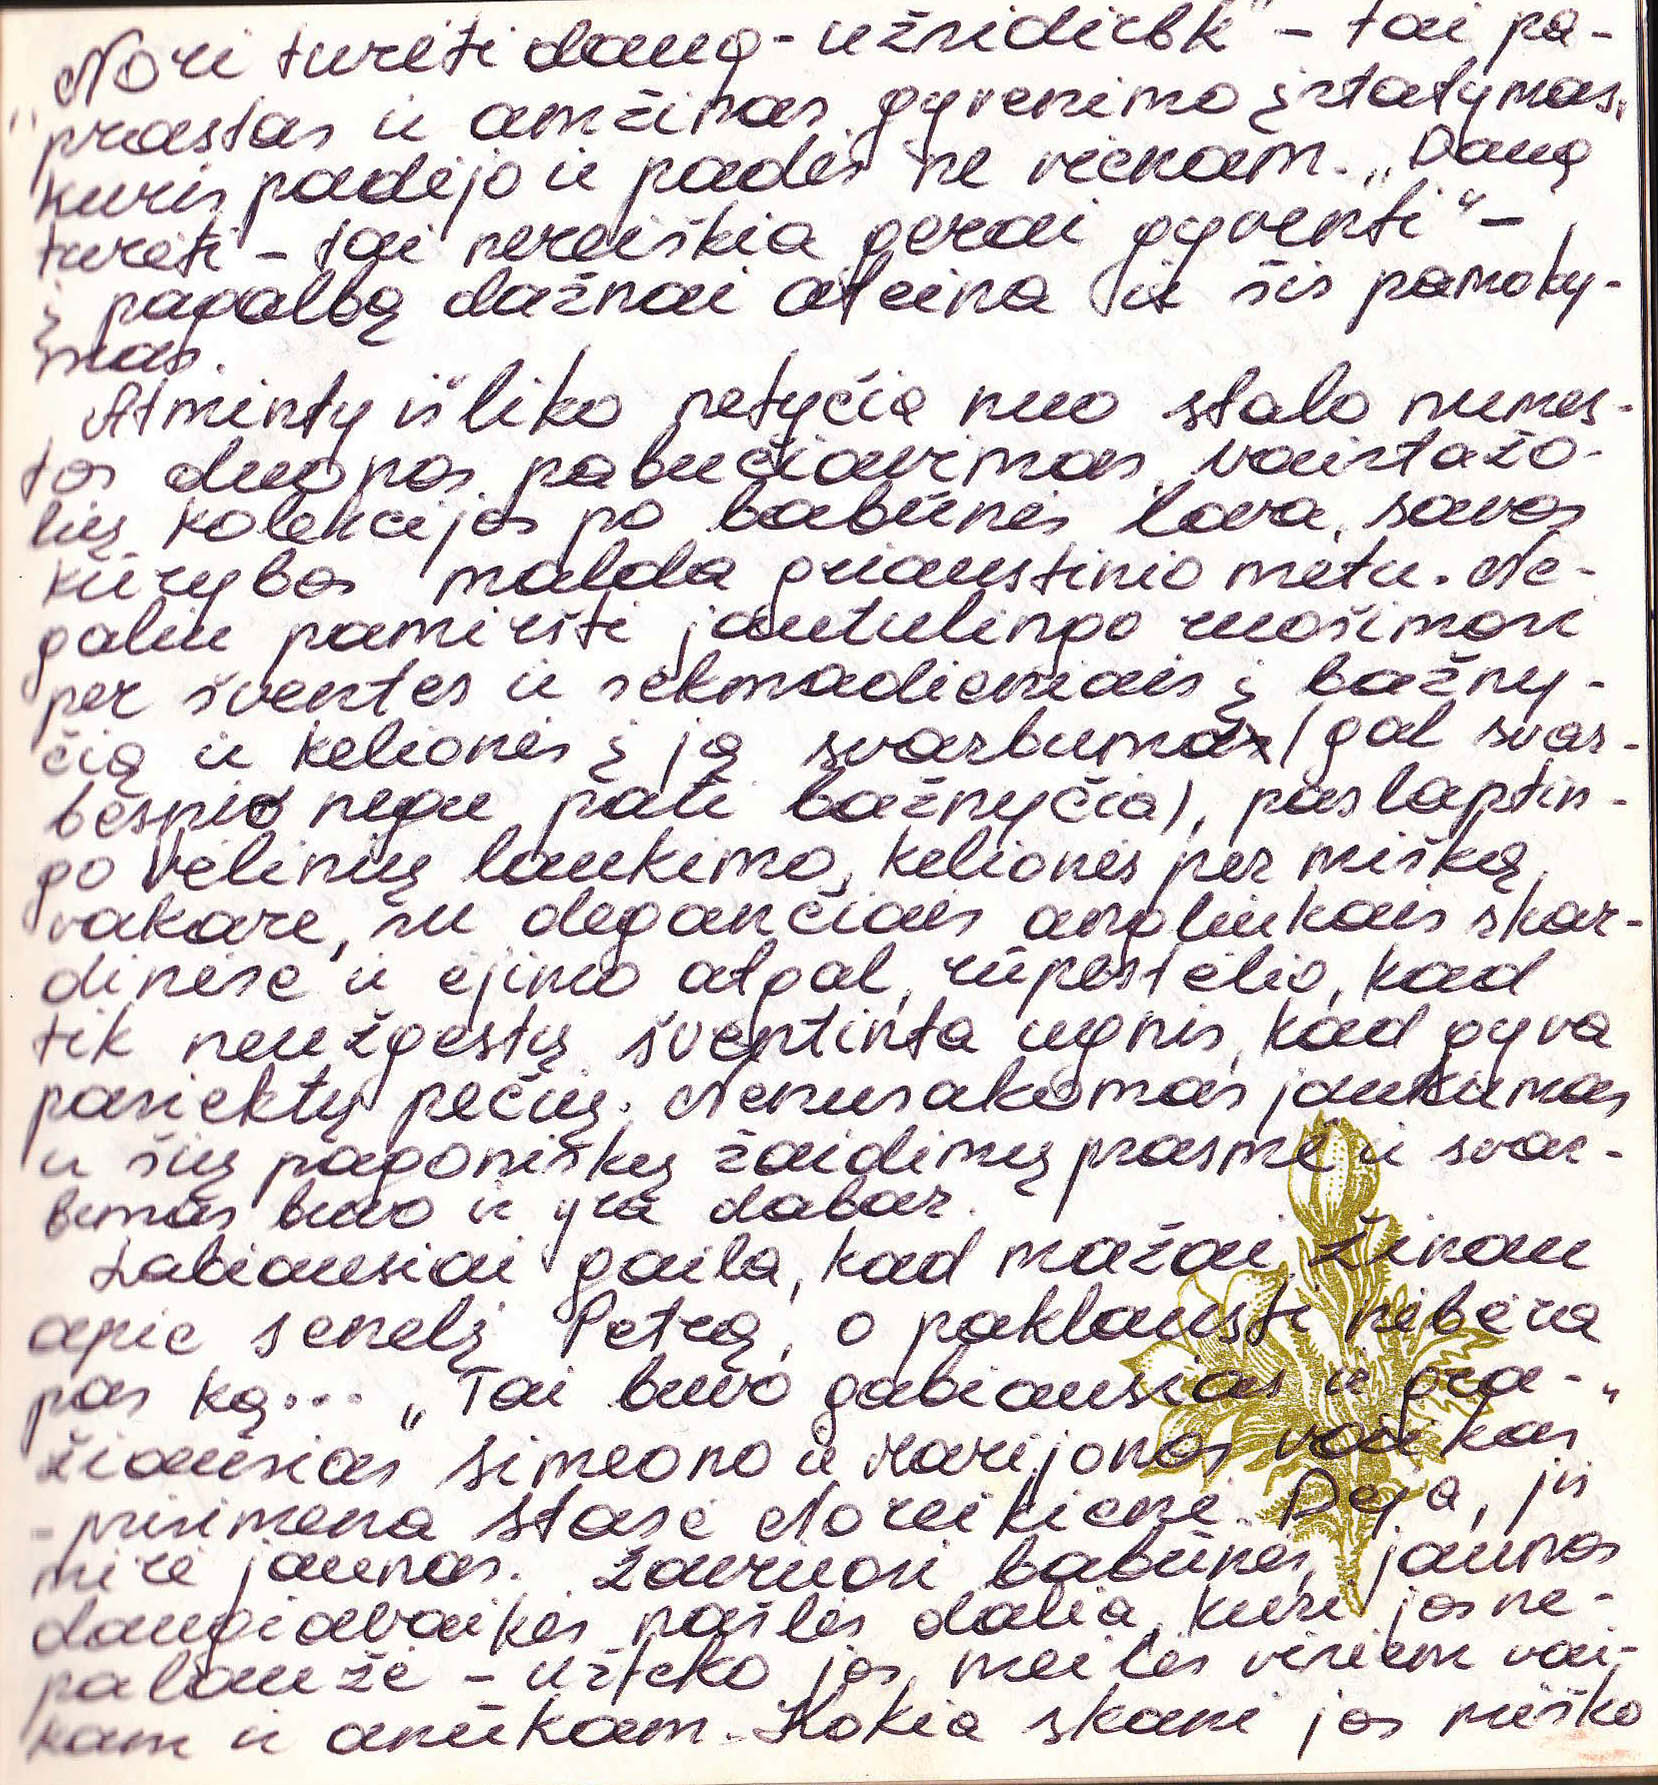 „Nori turėti daug - užsidirbk" - tai pa-
prastas ir amžinas gyvenimo įstatymas,
kuris padėjo ir padės ne vienam. „Daug
turėti - tai nereiškia gerai gyventi" -
į pagalbą dažnai ateina ir šis pamoky-
mas.
Atminty išliko netyčia nuo stalo numes-
tos duonos pabučiavimas, vaistažo-
lių kolekcijos po babūnės lova, savos
kūrybos malda griaustinio metu. Ne-
galiu pamiršti jaudulingo ruošimosi
per šventes ir sekmadieniais į bažny-
čią ir kelionės į ją svarbuma (gal svar-
besnio negu pati bažnyčia), paslaptin-
go vėlinių laukimo, kelionės per mišką,
vakare, su degančiais angliukais skar-
dinėse ir ėjimo atgal, rūpestėlio, kad
tik neužgestų šventinta ugnis, kad gyva
pasiektų pečių. Nenusakomas jaukumas
ir šių pagoniškų žaidimų prasmė ir svar-
bumas buvo ir yra dabar.
Labiausiai gaila, kad mažai žinau
apie senelį Petrą, o paklausti nebėra
pas ką... „Tai buvo gabiausias ir gra-
žiausias Simeono ir Marijonos vaikas"
- prisimena Stasė Noreikienė. Deja, jis
mirė jaunas. Žavriuosi babūnės, jaunos
daugiavaikės našlės dalia, kuri jos ne-
palaužė - užteko jos meilės visiem vai-
kam ir anūkam. Kokia skani jos miško